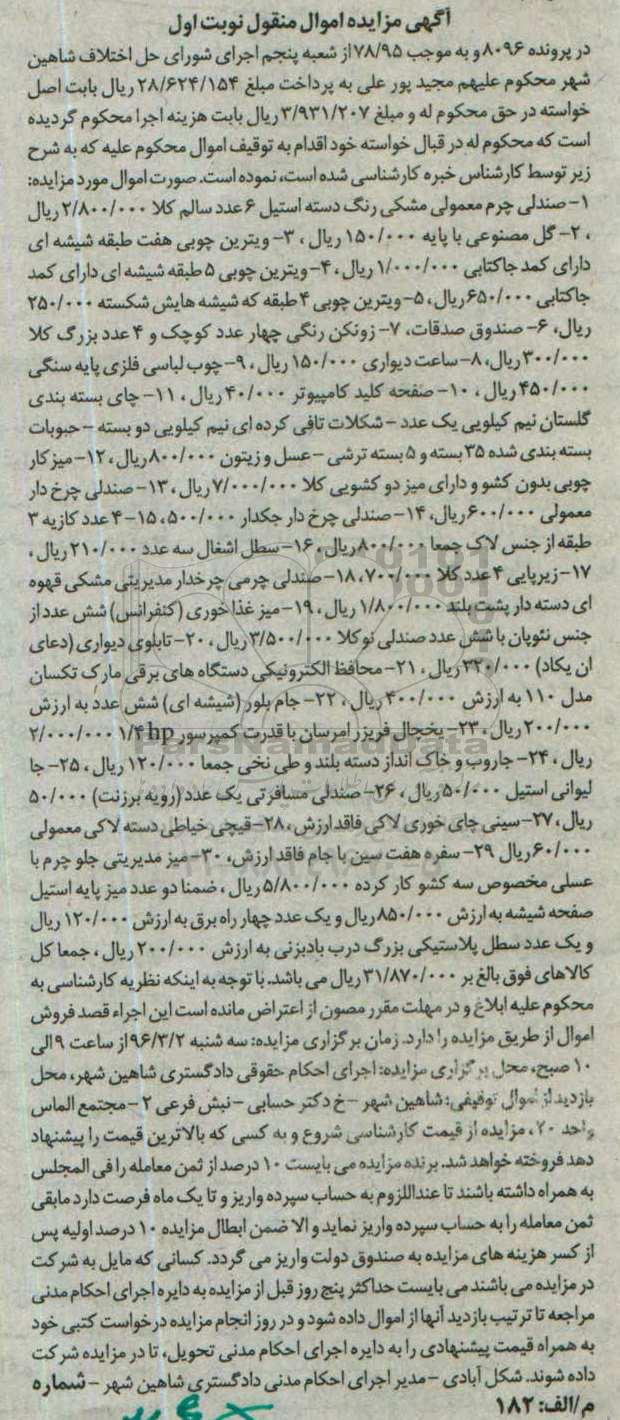 آگهی مزایده اموال منقول نوبت اول
در پرونده ۸۰۹۶ و به موجب ۷۸/۹۵ از شعبه پنجم اجرای شورای حل اختلاف شاهین
شهر محکوم علیهم مجید پور علی به پرداخت مبلغ ۲۸/۶۲۴/۱۵۴ ریال بابت اصل
خواسته در حق محکوم له و مبلغ ۳/۹۳۱/۲۰۷ ریال بابت هزینه اجرا محکوم گردیده
است که محکوم له در قبال خواسته خود اقدام به توقیف اموال محکوم علیه که به شرح
زیر توسط کارشناس خبره کارشناسی شده است، نموده است. صورت اموال مورد مزایده:
۱- صندلی چرم معمولی مشکی رنگ دسته استیل ۶ عدد سالم کلا ۲/۸۰۰/۰۰۰ ریال
، ۲- گل مصنوعی با پایه ۱۵۰/۰۰۰ ریال ، ۳- ویترین چوبی هفت طبقه شیشه ای
دارای کمد جاکتابی ۱/۰۰۰/۰۰۰ ریال ، ۴- ویترین چوبی ۵ طبقه شیشه ای دارای کمد
جاکتابی ۶۵۰/۰۰۰ ریال ، ۵- ویترین چوبی ۴ طبقه که شیشه هایش شکسته ۲۵۰/۰۰۰
ریال، ۶- صندوق صدقات، ۷- زونکن رنگی چهار عدد کوچک و ۴ عدد بزرگ کلا
۳۰۰/۰۰۰ ریال، ۸- ساعت دیواری ۱۵۰/۰۰۰ ریال ، ۹- چوب لباسی فلزی پایه سنگی
۴۵۰/۰۰۰ ریال ، ۱۰- صفحه کلید کامپیوتر ۴۰/۰۰۰ ریال ، ۱۱- چای بسته بندی
گلستان نیم کیلویی یک عدد - شکلات تافی کرده ای نیم کیلویی دو بسته - حبوبات
بسته بندی شده ۳۵ بسته و ۵ بسته ترشی - عسل و زیتون ۸۰۰/۰۰۰ ریال ، ۱۲- میز کار
چوبی بدون کشو و دارای میز دو کشویی کلا ۷/۰۰۰/۰۰۰ ریال ، ۱۳- صندلی چرخ دار
معمولی ۶۰۰/۰۰۰ ریال، ۱۴- صندلی چرخ دار جکدار ۵۰۰/۰۰۰، ۱۵- ۴ عدد کازیه ۳
طبقه از جنس لاک جمعا ۸۰۰/۰۰۰ ریال ، ۱۶- سطل اشغال سه عدد ۲۱۰/۰۰۰ ریال ،
۱۷- زیرپایی ۴ عدد کلا ۷۰۰/۰۰۰، ۱۸- صندلی چرمی چرخدار مدیریتی مشکی قهوه
ای دسته دار پشت بلند ۱/۸۰۰/۰۰۰ ریال ، ۱۹- میز غذا خوری (کنفرانس) شش عدد از
جنس نئوپان با شش عدد صندلی نو کلا ۳/۵۰۰/۰۰۰ ریال ، ۲۰- تابلوی دیواری (دعای
ان یکاد) ۳۲۰/۰۰۰ ریال ، ۲۱- محافظ الکترونیکی دستگاه های برقی مارک تکسان
مدل ۱۱۰ به ارزش ۴۰۰/۰۰۰ ریال ، ۲۲- جام بلور (شیشه ای) شش عدد به ارزش
۲۰۰/۰۰۰ ریال ، ۲۳- یخچال فریزر امرسان با قدرت کمپرسور ۱/۴ hp ۲/۰۰۰/۰۰۰
ریال ، ۲۴- جاروب و خاک انداز دسته بلند و طی نخی جمعا ۱۲۰/۰۰۰ ریال ، ۲۵- جا
لیوانی استیل ۵۰/۰۰۰ ریال ، ۲۶- صندلی مسافرتی یک عدد (رویه برزنت) ۵۰/۰۰۰
ریال ، ۲۷- سینی چای خوری لاکی فاقد ارزش ، ۲۸- قیچی خیاطی دسته لاکی معمولی
۶۰/۰۰۰ ریال ۲۹- سفره هفت سین با جام فاقد ارزش، ۳۰- میز مدیریتی جلو چرم با
عسلی مخصوص سه کشو کار کرده ۵/۸۰۰/۰۰۰ ریال ، ضمنا دو عدد میز پایه استیل
صفحه شیشه به ارزش ۸۵۰/۰۰۰ ریال و یک عدد چهار راه برق به ارزش ۱۲۰/۰۰۰ ریال
و یک عدد سطل پلاستیکی بزرگ درب بادبزنی به ارزش ۲۰۰/۰۰۰ ریال ، جمعا کل
کالاهای فوق بالغ بر ۳۱/۸۷۰/۰۰۰ ریال می باشد. با توجه به اینکه نظریه کارشناسی به
محکوم علیه ابلاغ و در مهلت مقرر مصون از اعتراض مانده است این اجراء قصد فروش
اموال از طریق مزایده را دارد. زمان برگزاری مزایده: سه شنبه ۹۶/۳/۲ از ساعت ۹ الی
۱۰ صبح، محل برگزاری مزایده: اجرای احکام حقوقی دادگستری شاهین شهر، محل
بازدید از اموال توقیفی: شاهین شهر - خ دکتر حسابی - نبش فرعی ۲ - مجتمع الماس
واحد ۲۰ ، مزایده از قیمت کارشناسی شروع و به کسی که بالاترین قیمت را پیشنهاد
دهد فروخته خواهد شد. برنده مزایده می بایست ۱۰ درصد از ثمن معامله را فی المجلس
به همراه داشته باشند تا عنداللزوم به حساب سپرده واریز و تا یک ماه فرصت دارد مابقی
ثمن معامله را به حساب سپرده واریز نماید و الا ضمن ابطال مزایده ۱۰ درصد اولیه پس
از کسر هزینه های مزایده به صندوق دولت واریز می گردد. کسانی که مایل به شرکت
در مزایده می باشند می بایست حداکثر پنج روز قبل از مزایده به دایره اجرای احکام مدنی
مراجعه تا ترتیب بازدید آنها از اموال داده شود و در روز انجام مزایده درخواست کتبی خود
به همراه قیمت پیشنهادی را به دایره اجرای احکام مدنی تحویل، تا در مزایده شرکت
داده شوند. شکل آبادی - مدیر اجرای احکام مدنی دادگستری شاهین شهر - شماره
م/الف: ۱۸۲
ParsNamadData